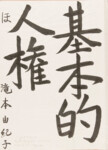 基本的
人権
ほ 滝本由紀子